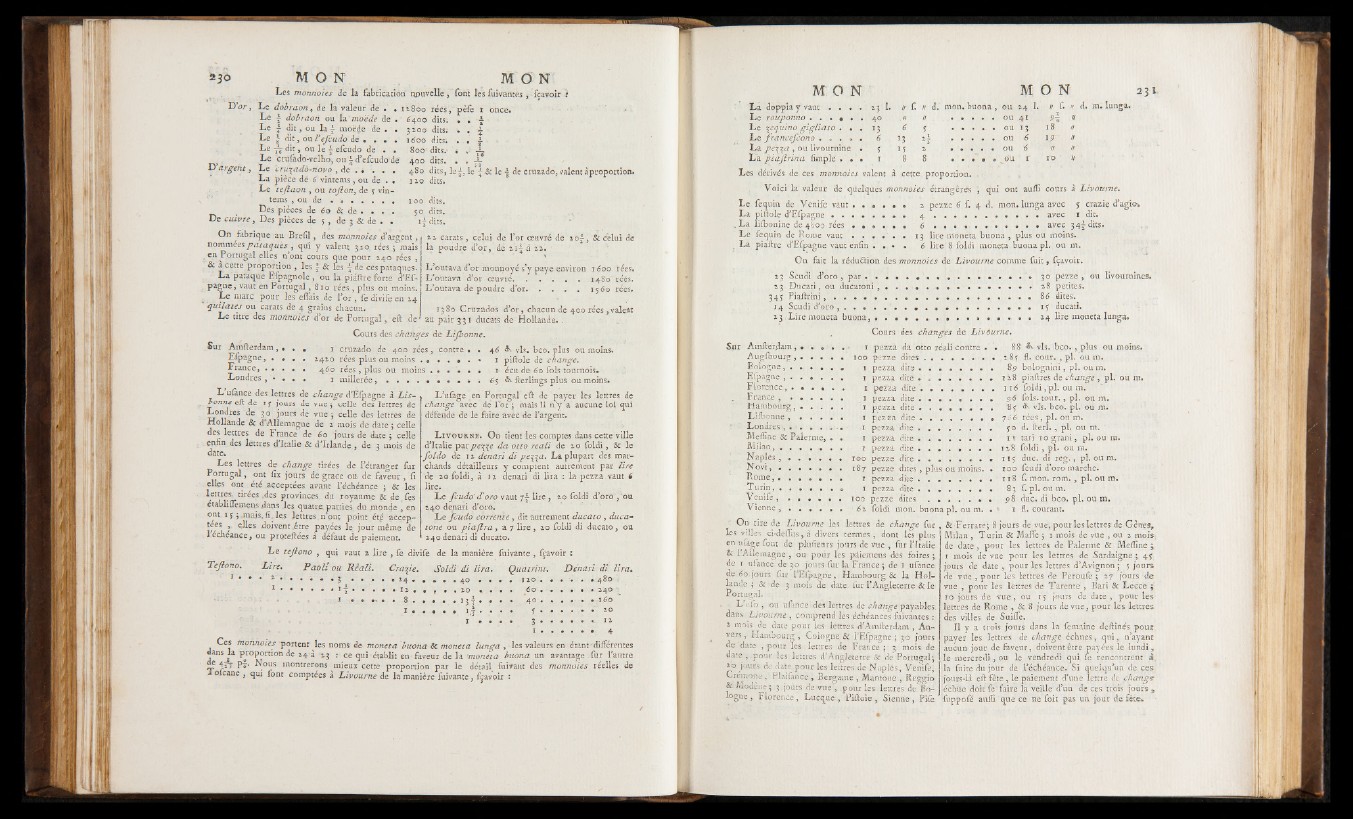 230 MON MON
Les monnoies de la fabrication nouvelle, sont les suivantes, sçavoir :
D'or, Le dobraon, de la valeur de . . 12800 rées, pèse 1 once.
Le ½ dobraon ou la moëde de . 6400 dits. . . ½
dit, ou la ½ moëde de . . 3200 dits. . . ¼
dit, ou l'escudo de . . . . 1600 dits. . . ⅛
Le 1/16 dit, ou le ½ escudo de . . 800 dits. . . 1/16
Le crusado-velho, ou ¼ d'escudo de 400 dits. . .
D'argent, Le cruzado-novo, de . . . . . 480 dits, le ½, le ¼ & le ⅛ de cruzado, valent à proportion.
La pièce de 6 vintems, ou de . . 120 dits.
Le testaon, ou toston, de 5 vin-
tems, ou de . . . . . . . 100 dits.
Des pièces de 60 & de . . . . 50 dits.
De cuivre, Des pièces de 5, de 3 & de . . 1½ dits.
On fabrique au Bresil, des monnoies d'argent,
nommées pataques, qui y valent 320 rées ; mais
en Portugal elles n'ont cours que pour 240 rées,
& à cette proportion, les ½ & les ¼ de ces pataques.
La pataque Espagnole, ou la piastre forte d'Es-
pagne, vaut en Portugal, 820 rées, plus ou moins.
Le marc pour les essais de l'or, se divise en 24
quilates ou carats de 4 grains chacun.
Le titre des monnoies d'or de Portugal, est de
22 carats, celui de l'or œuvré de 20½, & celui de
la poudre d'or, de 21½ à 22.
L'outava d'or monnoyé s'y paye environ 1600 rées.
L'outava d'or œuvré. . . . . . 1480 rées.
L'outava de poudre d'or. . . . . 1560 rées.
1380 Cruzados d'or, chacun de 400 rées, valent
au pair 331 ducats de Hollande.
Cours des changes de Lisbonne.
Sur Amsterdam, . . . 1 cruzado de 400 rées, contre . . 46 ₰ vls. bco. plus ou moins.
Espagne, . . . . 2420 rées plus ou moins . . . . . . . 1 pistole de change.
France, . . . . . 460 rées, plus ou moins . . . . . . 1 écu de 60 sols tournois.
Londres, . . . . 1 millerée, . . . . . . . . . . 65 ₰ sterlings plus ou moins.
L'usance des lettres de change d'Espagne à Lis-
bonne est de 15 jours de vue ; celle des lettres de
Londres de 30 jours de vue ; celle des lettres de
Hollande & d'Allemagne de 2 mois de date ; celle
des lettres de France de 60 jours de date ; celle
enfin des lettres d'Italie & d'Irlande, de 3 mois de
date.
Les lettres de change tirées de l'étranger sur
Portugal, ont six jours de grace ou de faveur, si
elles ont été acceptées avant l'échéance ; & les
lettres tirées des provinces du royaume & de ses
établissemens dans les quatre parties du monde, en
ont 15 ; mais, si les lettres n'ont point été accep-
tées, elles doivent être payées le jour même de
l'échéance, ou protestées à défaut de paiement.
L'usage en Portugal est de payer les lettres de
change avec de l'or ; mais il n'y a aucune loi qui
défende de le faire avec de l'argent.
LIVOURNE. On tient les comptes dans cette ville
d'Italie par pezze da otto reali de 20 soldi, & le
soldo de 12 denari di pezza. La plupart des mar-
chands détailleurs y comptent autrement par lire
de 20 soldi, à 12 denari di lira : la pezza vaut 6
lire.
Le scudo d'oro vaut 7½ lire, 20 soldi d'oro, ou
240 denari d'oro.
Le scudo corrente, dit autrement ducato, duca-
tone ou piastra, a 7 lire, 20 soldi di ducato, ou
240 denari di ducato.
Le testono, qui vaut 2 lire, se divise de la manière suivante, sçavoir :
Testono. Lire. Paoli ou Réali. Crazie. Soldi di lira. Quatrins. Denari di lira.
1 . . . 2 . . . . . . 3 . . . . . 24 . . . . . 40 . . . . 120 . . . . . 480
1 . . . . . . 1½ . . . . . 12 . . . . . 20 . . . . 60 . . . . . . 240
1 . . . . . 8 . . . . . 13⅓ . . . . 40 . . . . . . 160
1 . . . . . 1⅔ . . . . 5 . . . . . . 20
1 . . . . 3 . . . . . . 12
1 . . . . . . 4
Ces monnoies portent les noms de moneta buona & moneta lunga, les valeurs en étant différentes
dans la proportion de 24 à 23 : ce qui établit en faveur de la moneta buona un avantage sur l'autre
de 4 8/23 p°. Nous montrerons mieux cette proportion par le détail suivant des monnoies réelles de
Toscane, qui sont comptées à Livourne de la manière suivante, sçavoir :
MON MON 231
La doppia y vaut . . . . 23 l. " s. " d. mon. buona, ou 24 l. " s. " d. m. lunga.
Le rouponno . . . . . . 40 " " . . . . . ou 41
Le zequino gigliato . . . 13 6 5 . . . . . ou 13 18 "
Le francescono . . . . . 6 13 . . . . . ou 6 19 "
La pezza, ou livournine . 5 15 2 . . . . . ou 6 " "
La piastrina simple . . . 1 8 8 . . . . . ou 1 10 "
Les dérivés de ces monnoies valent à cette proportion.
Voici la valeur de quelques monnoies étrangères, qui ont aussi cours à Livourne.
Le sequin de Venise vaut . . . . . . 2 pezze 6 s. 4 d. mon. lunga avec 5 crazie d'agio.
La pistole d'Espagne . . . . . . . . 4 . . . . . . . . . . . avec 1 dit.
La lisbonine de 4800 rées . . . . . . 6 . . . . . . . . . . . avec 34½ dits.
Le sequin de Rome vaut . . . . . . 13 lire moneta buona, plus ou moins.
La piastre d'Espagne vaut enfin . . . . 6 lire 8 soldi moneta buona pl. ou m.
On fait la réduction des monnoies de Livourne comme suit, sçavoir.
23 Scudi d'oro, par . . . . . . . . . . . . . . . . 30 pezze, ou livournines.
23 Ducati, ou ducatoni, . . . . . . . . . . . . . . 28 petites.
345 Piastrini, . . . . . . . . . . . . . . . . . . . 86 dites.
14 Scudi d'oro, . . . . . . . . . . . . . . . . . . 15 ducati.
23 Lire moneta buona, . . . . . . . . . . . . . . . 24 lire moneta lunga.
Cours des changes de Livourne.
Sur Amsterdam, . . . . . 1 pezza da otto réali contre . . 88 ₰ vls. bco., plus ou moins.
Augsbourg, . . . . . 100 pezze dites . . . . . . . . 185 fl. cour., pl. ou m.
Bologne, . . . . . . 1 pezza dite . . . . . . . . 89 bolognini, pl. ou m.
Espagne, . . . . . . 1 pezza dite . . . . . . . . 128 piastres de change, pl. ou m.
Florence, . . . . . . 1 pezza dite . . . . . . . . 116 soldi, pl. ou m.
France, . . . . . . 1 pezza dite . . . . . . . . 96 sols. tour., pl. ou m.
Hambourg, . . . . . 1 pezza dite . . . . . . . . 85 ₰ vls. bco. pl. ou m.
Lisbonne, . . . . . 1 pezza dite . . . . . . . . 766 rées, pl. ou m.
Londres, . . . . . . 1 pezza dite . . . . . . . . 50 d. sterl., pl. ou m.
Messine & Palerme, . . 1 pezza dite . . . . . . . . 11 tari 10 grani, pl. ou m.
Milan, . . . . . . . 1 pezza dite . . . . . . . . 128 soldi, pl. ou m.
Naples, . . . . . . 100 pezze dites . . . . . . . . 115 duc. di reg., pl. ou m.
Novi, . . . . . . . 187 pezze dites, plus ou moins. . . 100 scudi d'oro marche.
Rome, . . . . . . . 1 pezza dite . . . . . . . . 118 s. mon. rom., pl. ou m.
Turin, . . . . . . . 1 pezza dite . . . . . . . . 83 s. pl. ou m.
Venise, . . . . . . 100 pezze dites . . . . . . . 98 duc. di bco. pl. ou m.
Vienne, . . . . . . 62 soldi mon. buona pl. ou m. . . 1 fl. courant.
On tire de Livourne les lettres de change sur
les villes ci-dessus, à divers termes, dont les plus
en usage sont de plusieurs jours de vue, sur l'Italie
& l'Allemagne, ou pour les paiemens des foires ;
de 1 usance de 30 jours sur la France ; de 1 usance
de 60 jours sur l'Espagne, Hambourg & la Hol-
lande ; & de 3 mois de date sur l'Angleterre & le
Portugal.
L'uso, ou usance des lettres de change payables
dans Livourne, comprend les échéances suivantes :
2 mois de date pour les lettres d'Amsterdam, An-
vers, Hambourg, Cologne & l'Espagne ; 30 jours
de date, pour les lettres de France ; 3 mois de
date, pour les lettres d'Angleterre & de Portugal ;
20 jours de date pour les lettres de Naples, Venise,
Crémone, Plaisance, Bergame, Mantoue, Reggio
& Modène ; 3 jours de vue, pour les lettres de Bo-
logne, Florence, Lucque, Pistoie, Sienne, Pise
& Ferrare ; 8 jours de vue, pour les lettres de Gènes,
Milan, Turin & Masse ; 1 mois de vue, ou 2 mois
de date, pour les lettres de Palerme & Messine ;
1 mois de vue pour les lettres de Sardaigne ; 45
jours de date, pour les lettres d'Avignon ; 5 jours
de vue, pour les lettres de Perouse ; 27 jours de
vue, pour les lettres de Tarente, Bari & Lecce ;
10 jours de vue, ou 15 jours de date, pour les
lettres de Rome, & 8 jours de vue, pour les lettres
des villes de Suisse.
Il y a trois jours dans la semaine destinés pour
payer les lettres de change échues, qui, n'ayant
aucun jour de faveur, doivent être payées le lundi,
le mercredi, ou le vendredi qui se rencontrent à
la suite du jour de l'échéance. Si quelqu'un de ces
jours-là est fête, le paiement d'une lettre de change
échue doit se faire la veille d'un de ces trois jours,
supposé aussi que ce ne soit pas un jour de fête.